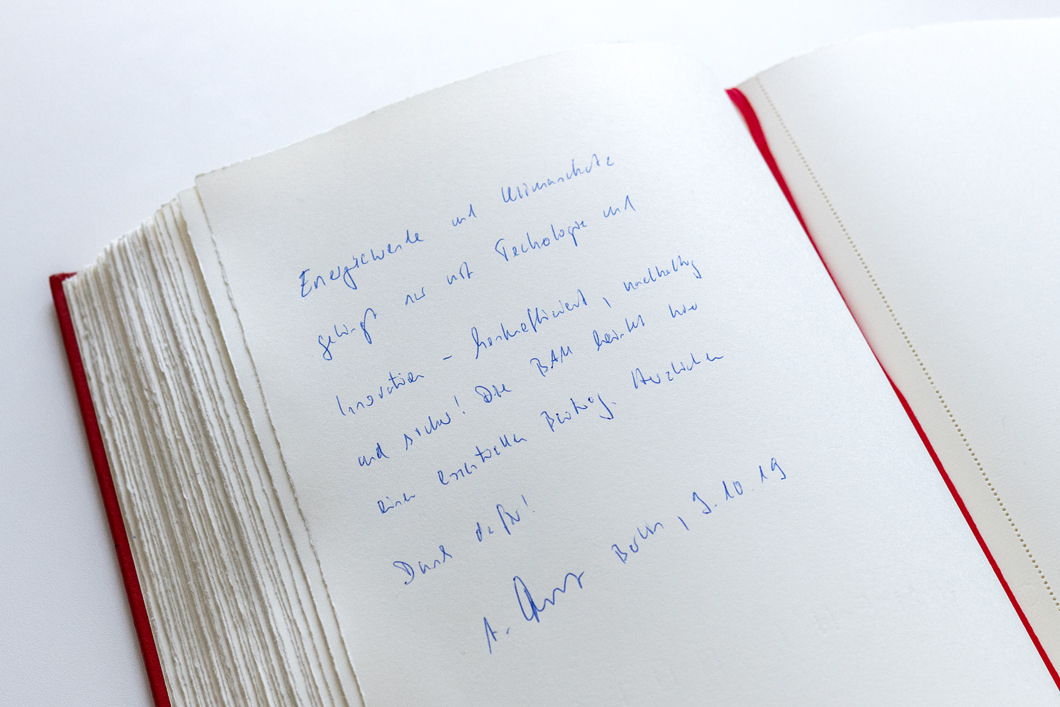 Energiewende und Klimaschutz
gelingt nur mit Technologie und
Innovation - kosteneffizient, nachhaltig
und sicher! Die BAM leistet hier
einen essentiellen Beitrag. Herzlichen
Dank dafür!
A. Berlin, 9.10.19